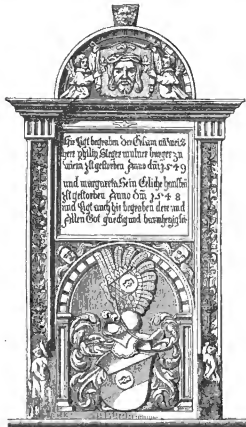 Hie ligt begraben der Ersam uñ weis
herr philip Steger munser burger zu
wienn Ist gestorben Anno dm̃ 1549
und margareta Sein Eeliche hausfraw
Ist gestorben Anno Dm̃ 1548
und ligt auch hie begraben dere und
Allen Got gnedig und barmhertzig sei